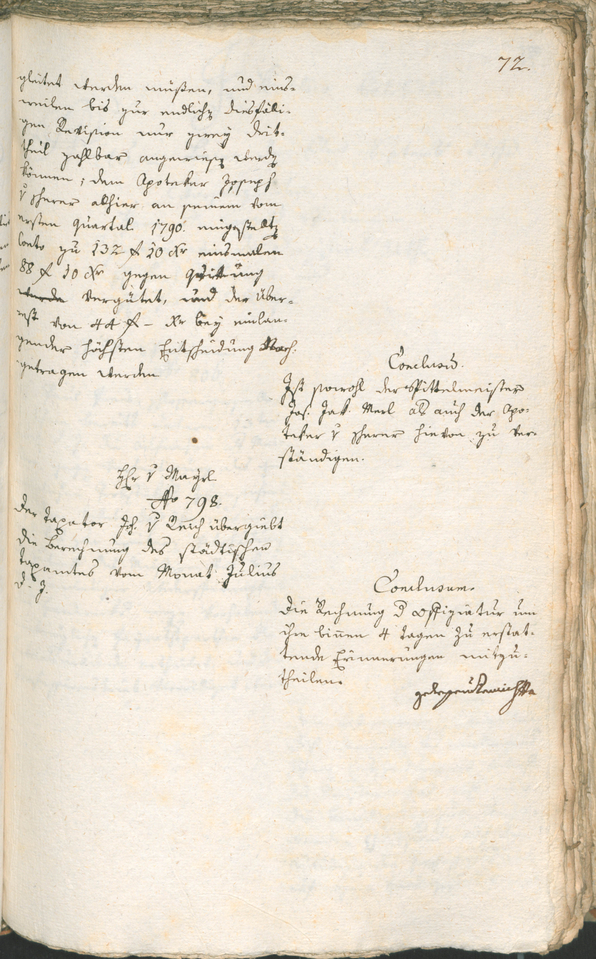 72.
werden müßen, und eins-
weilen bis zur endlichen diesfäli-
gen Revision nur zwey drit-
theil zahlbar angewiesen werden
können; dem Apoteker Joseph
v Scherer alhier an seinem vom
ersten Quartal 1790 eingestellten
Conto zu 132 f 10 Xr einsmalen
88 f 10 Xr gegen Quittung
vergütet, und der Über-
rest von 44 f – Xr bey einlan-
gender höchsten Entscheidung Nach-
getragen werden
Conclusum.
Ist sowohl der Spittelmeister
Jos. Merl als auch der Apo-
teker v Scherer hievon zu ver-
ständigen.
Hr v Mayrl.
No 798.
Der Taxator Joh. v Reich übergiebt
die Berechnung des städtischen
Taxamtes vom Monat Julius
d. J.
Conclusum.
Die Rechnung d Offiziatur um
ihre binnen 4 Tagen zu erstat-
tende Erinnerungen mitzu-
theilen.